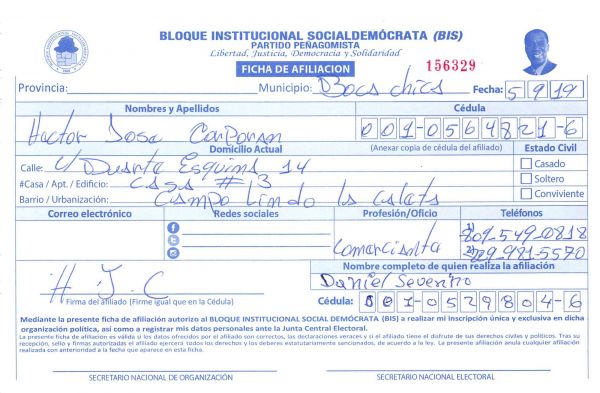 BLOQUE INSTITUCIONAL SOCIALDEMÓCRATA (BIS)
PARTIDO PEÑAGOMISTA
Libertad, Justicia, Democracia y Solidaridad
FICHA DE AFILIACION
156329
Provincia: Municipio: Boca chica Fecha: 5/9/19
Nombres y Apellidos Cédula
Hector Jose Corporan 001-0564821-6
Domicilio Actual (Anexar copia de cédula del afiliado) Estado Civil
Calle: c/ Duarte Esquina 14 Casado
#Casa / Apt. / Edificio: Casa # 3 Soltero
Barrio / Urbanización: Campo Lindo la Caleta Conviviente
Correo electrónico Redes sociales Profesión/Oficio Teléfonos
Comercisnta 1) 809-549-0818
2) 829-981-5570
Nombre completo de quien realiza la afiliación
H J. C Daniel Severino
Firma del afiliado (Firme igual que en la Cédula) Cédula: 001-0529804-6
Mediante la presente ficha de afiliación autorizo al BLOQUE INSTITUCIONAL SOCIAL DEMÓCRATA (BIS) a realizar mi inscripción única y exclusiva en dicha
organización política, así como a registrar mis datos personales ante la Junta Central Electoral.
La presente ficha de afiliación es válida si los datos ofrecidos por el afiliado son correctos, las declaraciones veraces y si el afiliado tiene el disfrute de sus derechos civiles y políticos. Tras su
recepción, sello y firmas autorizadas el afiliado ejercerá todos los derechos y los deberes estatutariamente sancionados, de acuerdo a la ley. La presente afiliación anula cualquier afiliación
realizada con anterioridad a la fecha que aparece en esta ficha.
SECRETARIO NACIONAL DE ORGANIZACIÓN SECRETARIO NACIONAL ELECTORAL